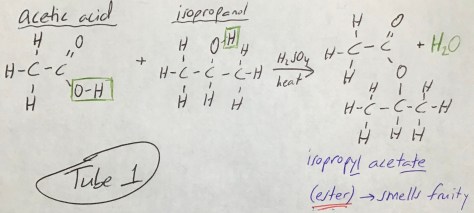 acetic acid
isopropanol
H O
H-C-C
H O-H
+
O-H
H H
H-C-C-C-H
H H H
H₂SO₄
heat
H O
H-C-C
H O
H-C-C-C-H
H H H
+ H₂O
Tube 1
isopropyl acetate
(ester) → smells fruity